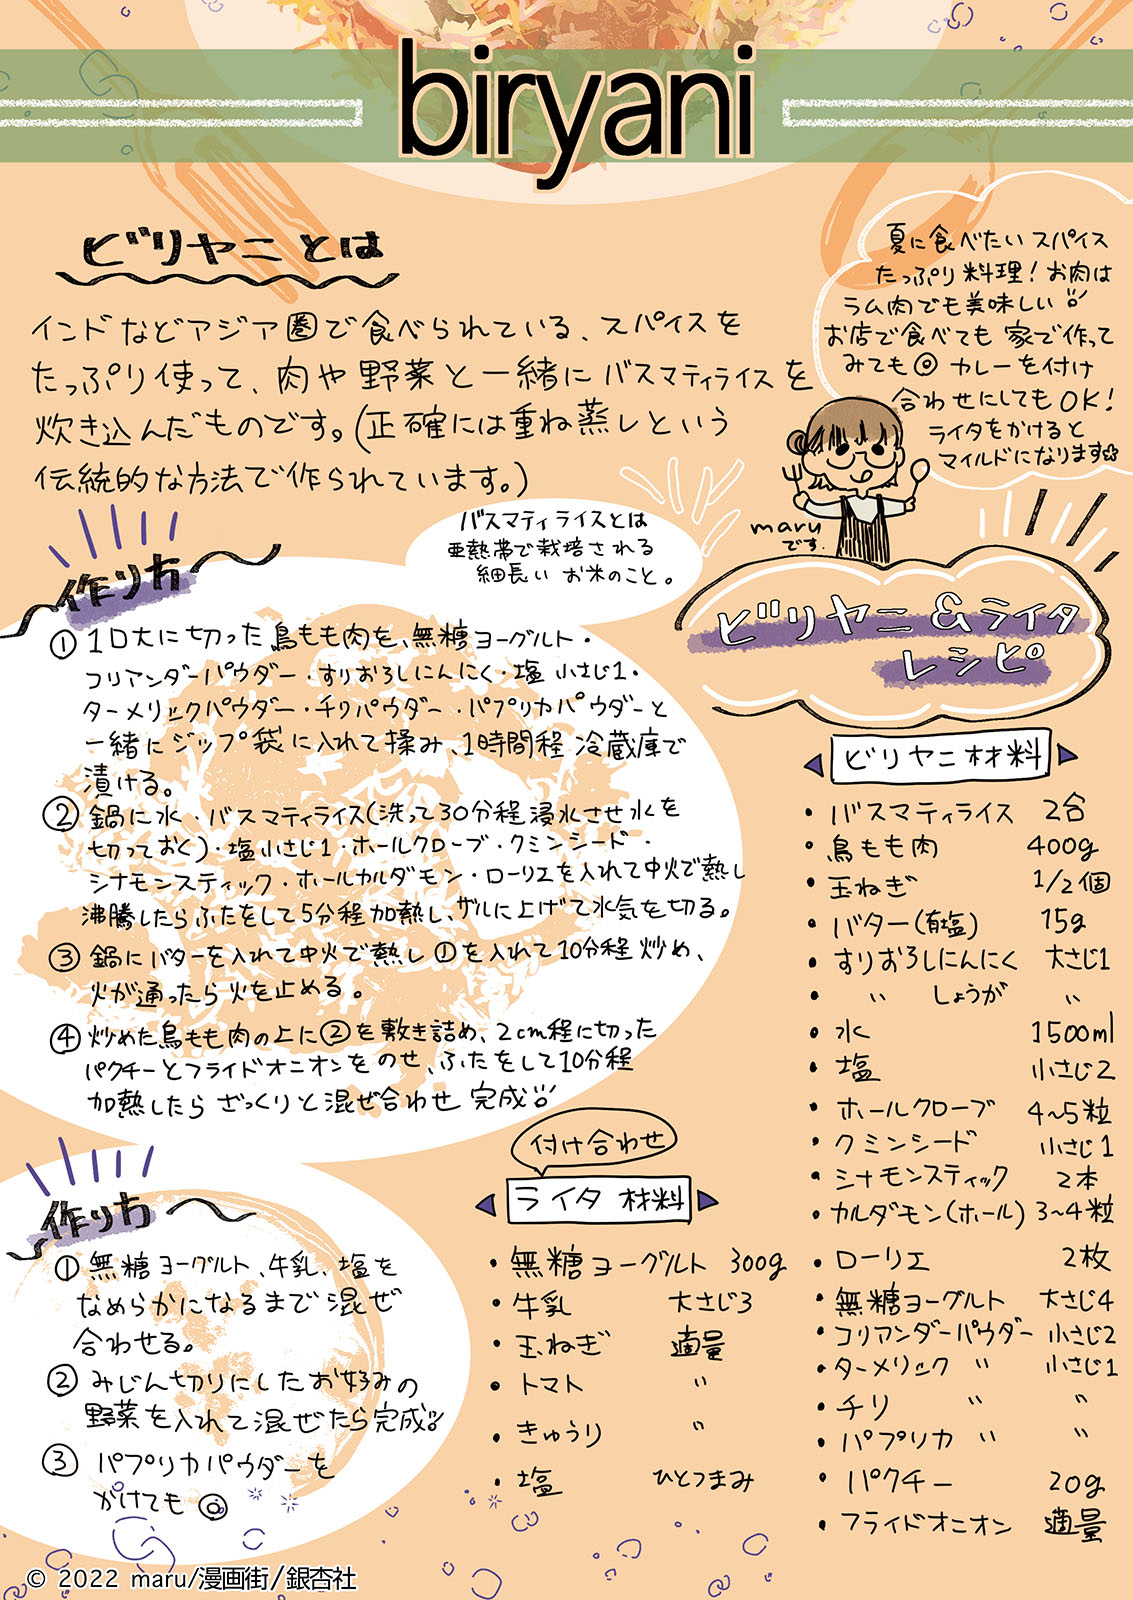 biryani
ビリヤニとは
インドなどアジア圏で食べられている、スパイスを
たっぷり使って、肉や野菜と一緒にバスマティライスを
炊き込んだものです。(正確には重ね蒸しという
伝統的な方法で作られています。)
夏に食べたいスパイス
たっぷり料理!お肉は
ラム肉でも美味しい
お店で食べても家で作って
みても◎カレーを付け
合わせにしてもOK!
ライタをかけると
マイルドになります☆
maru
です.
バスマティライスとは
亜熱帯で栽培される
細長いお米のこと。
作り方
① 1口大に切った鳥もも肉を、無糖ヨーグルト・
コリアンダーパウダー・すりおろしにんにく・塩小さじ1・
ターメリックパウダー・チリパウダー・パプリカパウダーと
一緒にジップ袋に入れて揉み、1時間程冷蔵庫で
漬ける。
② 鍋に水・バスマティライス(洗って30分程浸水させ水を
切っておく)・塩小さじ1・ホールクローブ・クミンシード・
シナモンスティック・ホールカルダモン・ローリエを入れて中火で熱し
沸騰したらふたをして5分程加熱し、ザルに上げて水気を切る。
③ 鍋にバターを入れて中火で熱し①を入れて10分程炒め、
火が通ったら火を止める。
④ 炒めた鳥もも肉の上に②を敷き詰め、2cm程に切った
パクチーとフライドオニオンをのせ、ふたをして10分程
加熱したらざっくりと混ぜ合わせ完成
ビリヤニ&ライタ
レシピ
ビリヤニ材料
・バスマティライス 2合
・鳥もも肉 400g
・玉ねぎ 1/2個
・バター(有塩) 15g
・すりおろしにんにく 大さじ1
・〃 しょうが 〃
・水 1500ml
・塩 小さじ2
・ホールクローブ 4~5粒
・クミンシード 小さじ1
・シナモンスティック 2本
・カルダモン(ホール) 3~4粒
・ローリエ 2枚
・無糖ヨーグルト 大さじ4
・コリアンダーパウダー 小さじ2
・ターメリック 〃 小さじ1
・チリ 〃 〃
・パプリカ 〃 〃
・パクチー 20g
・フライドオニオン 適量
付け合わせ
ライタ材料
・無糖ヨーグルト 300g
・牛乳 大さじ3
・玉ねぎ 適量
・トマト 〃
・きゅうり 〃
・塩 ひとつまみ
作り方
① 無糖ヨーグルト、牛乳、塩を
なめらかになるまで混ぜ
合わせる。
② みじん切りにしたお好みの
野菜を入れて混ぜたら完成
③ パプリカパウダーを
かけても◎
© 2022 maru/漫画街/銀杏社